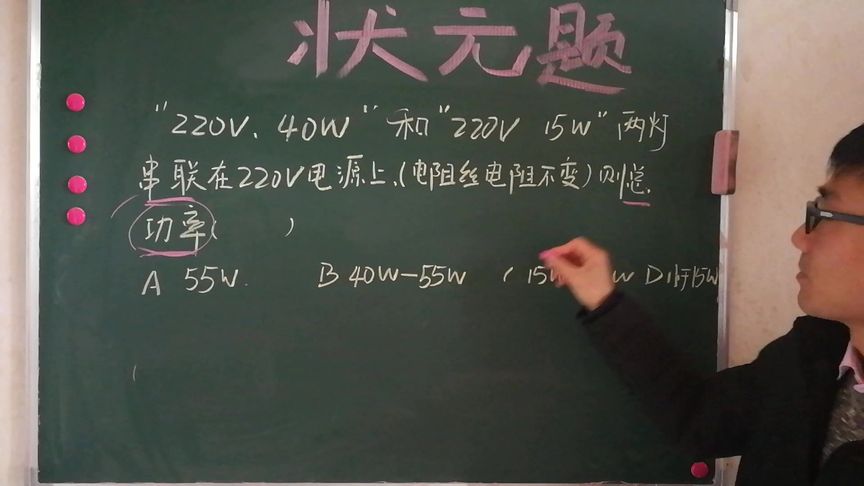 状元题
"220V. 40W" 和 "220V 15W" 两灯
串联在220V电源上.(电阻丝电阻不变)则总.
功率( )
A 55W. B 40W-55W C 15W W D 小于15W